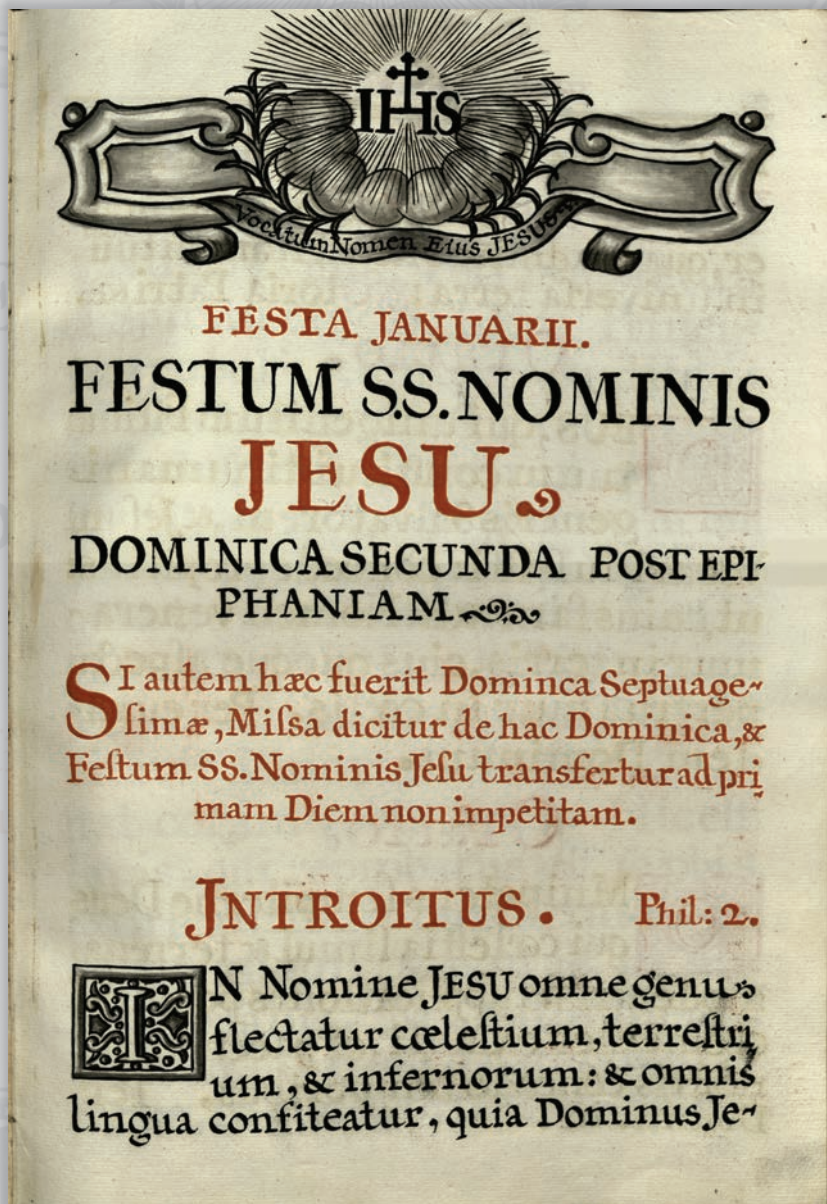 IHS
Vocatum Nomen Eius JESUS
FESTA JANUARII.
FESTUM S.S. NOMINIS
JESU
DOMINICA SECUNDA POST EPI-
PHANIAM
SI autem hæc fuerit Dominca Septuage-
ſimæ, Miſsa dicitur de hac Dominica, &
Feſtum SS. Nominis Jeſu transfertur ad pri
mam Diem non impetitam.
JNTROITUS. Phil: 2.
IN Nomine JESU omne genu
flectatur cœleſtium, terreſtri
um, & infernorum: & omnis
lingua confiteatur, quia Dominus Je-